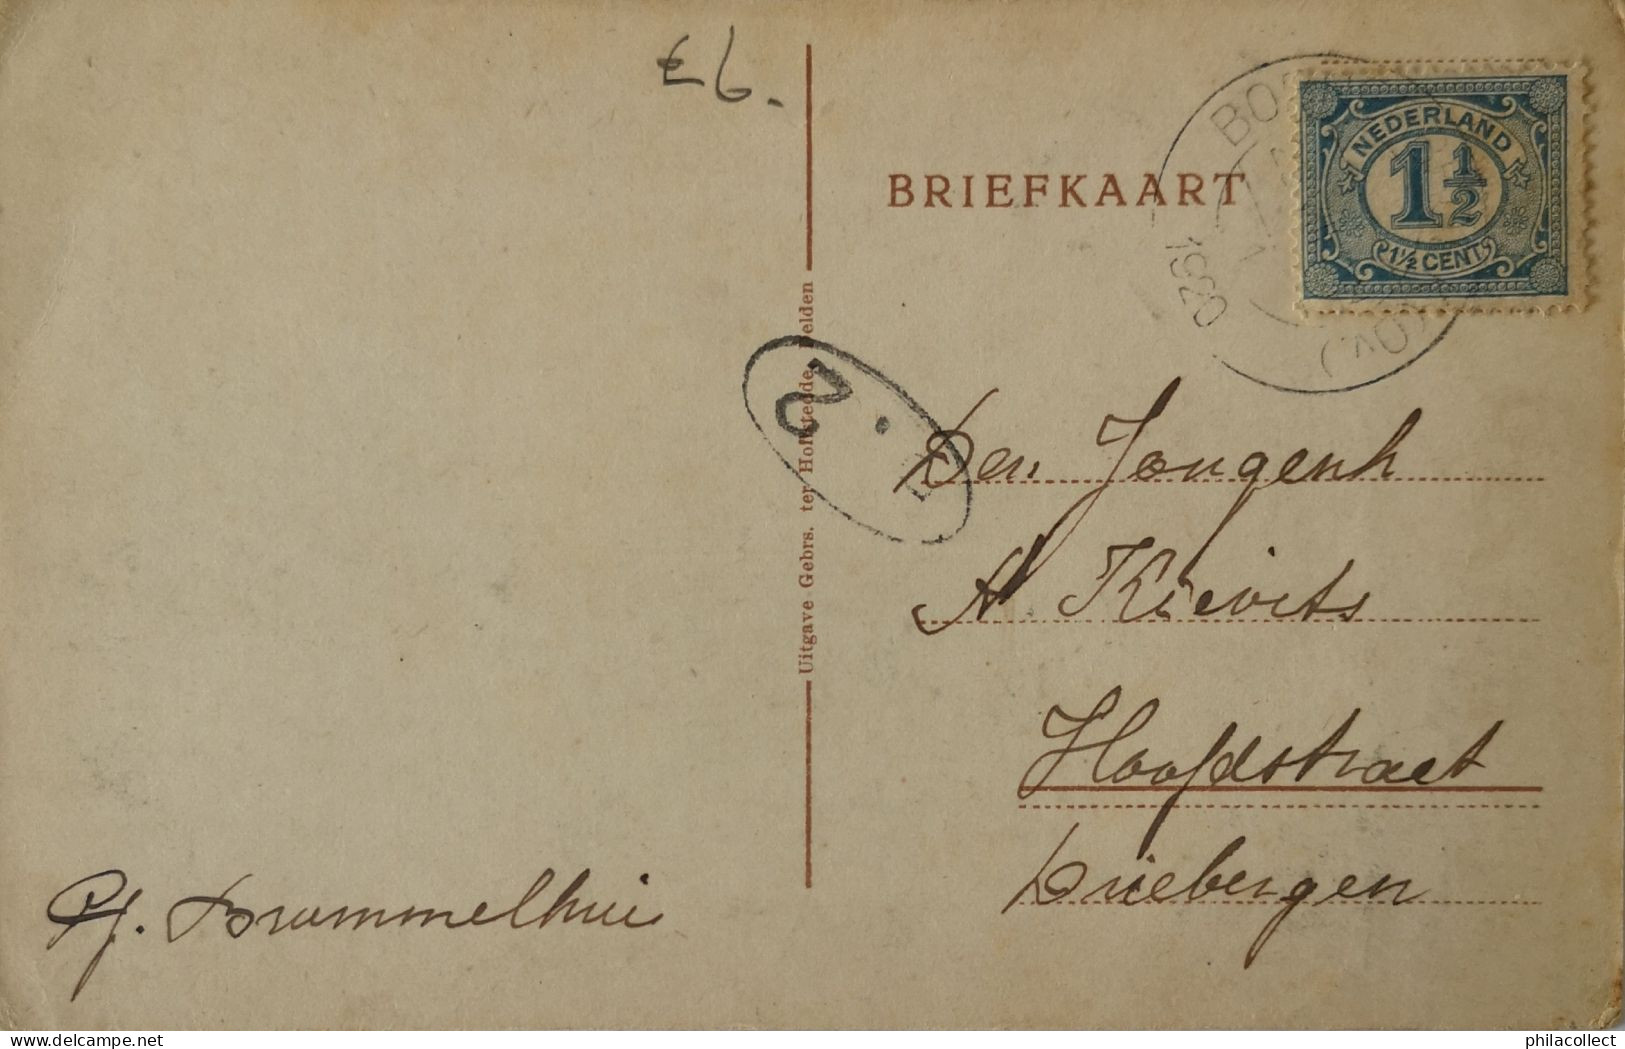 €6.
BRIEFKAART
NEDERLAND
1 1/2
1½ CENT
1920
(OV.)
Uitgave Gebrs. ter Hofstedde, Delden
2
Den Jongenh
A Kievits
Hoofdstraat
Driebergen
Pf. Brummelhuis
philacollect